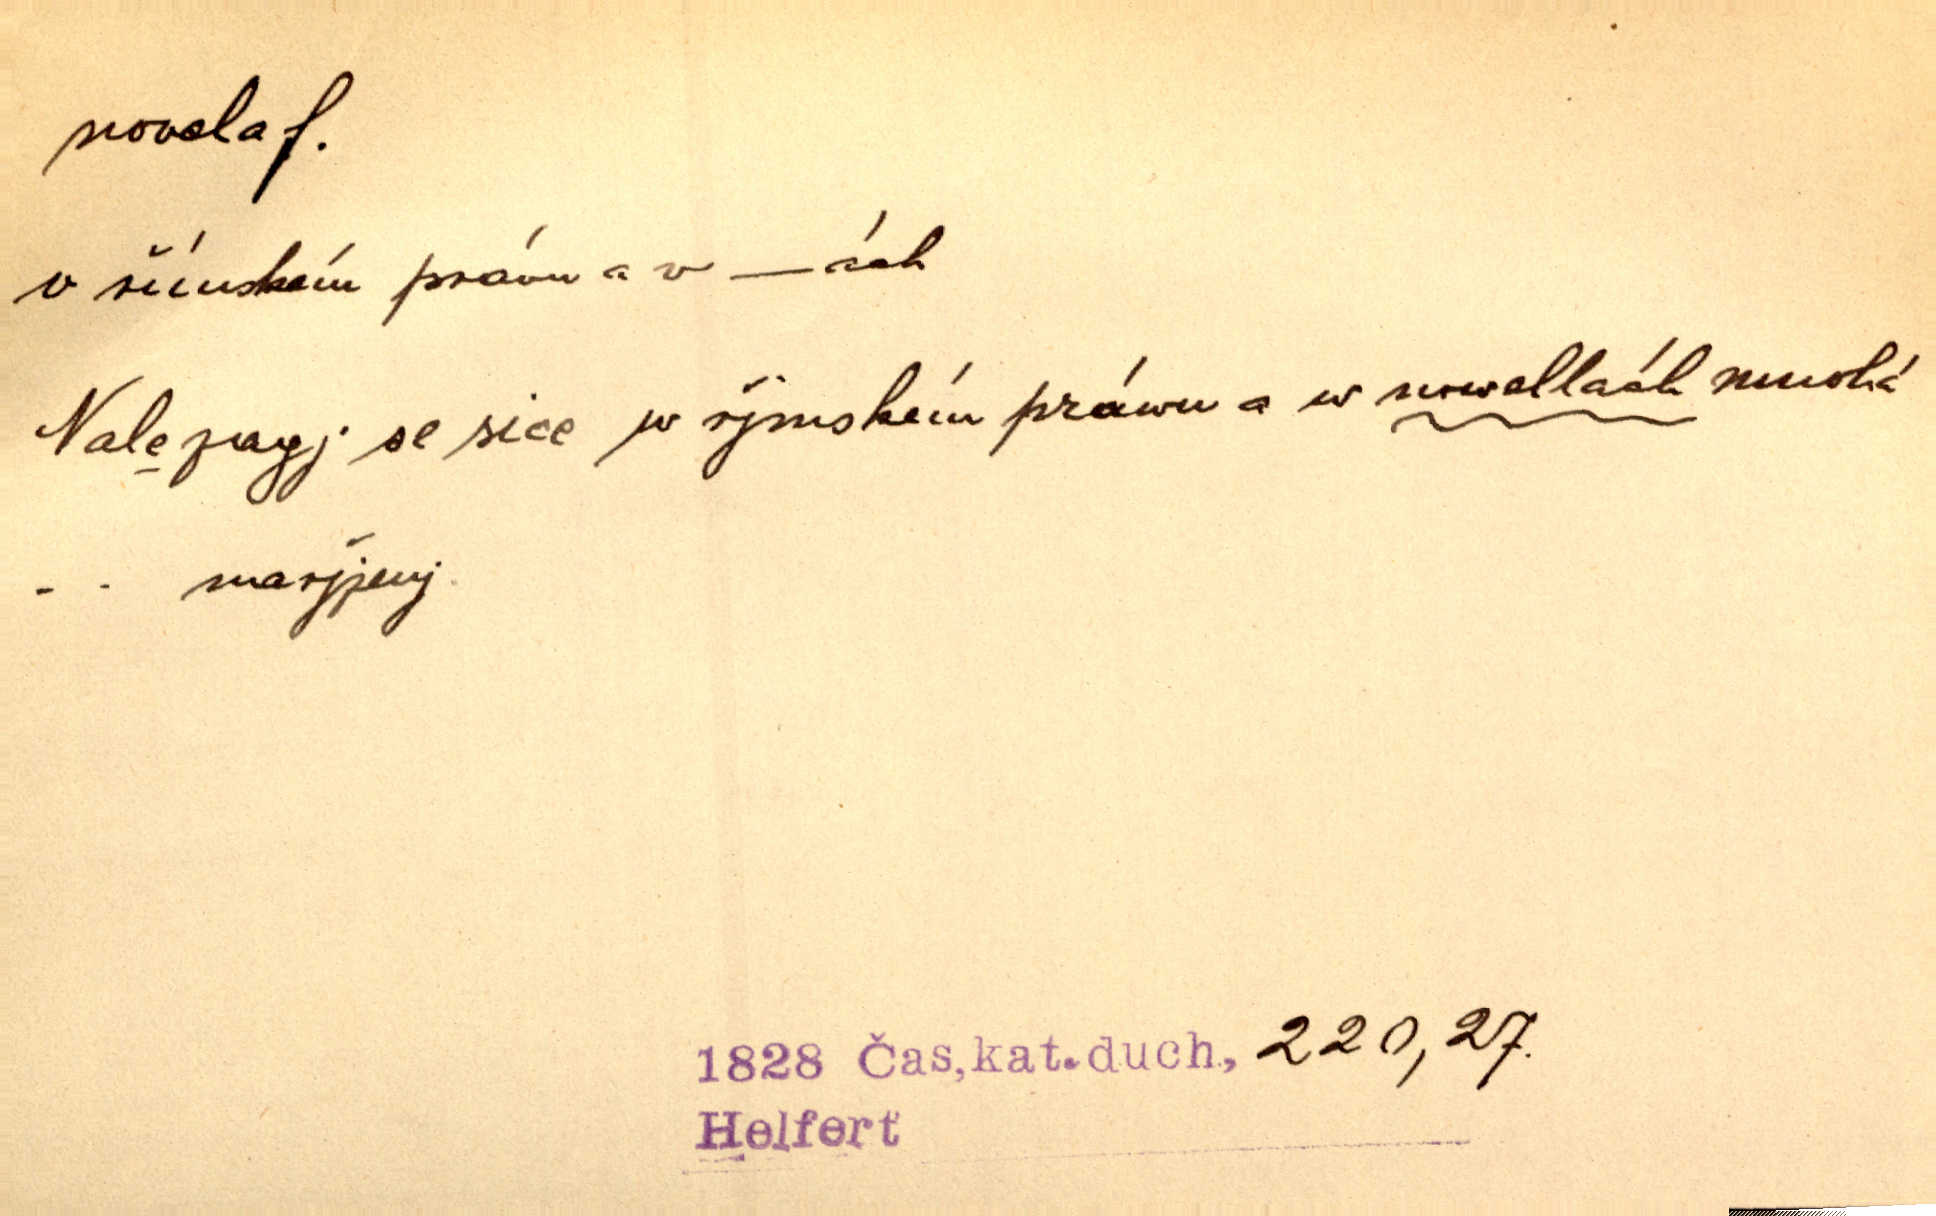 novela f.
v římském právu a v —ách
Nalezagj se sice w řjmském práwu a w nowellách mnohá
- - nařjzenj.
1828 Čas,kat.duch., 220, 27.
Helfert